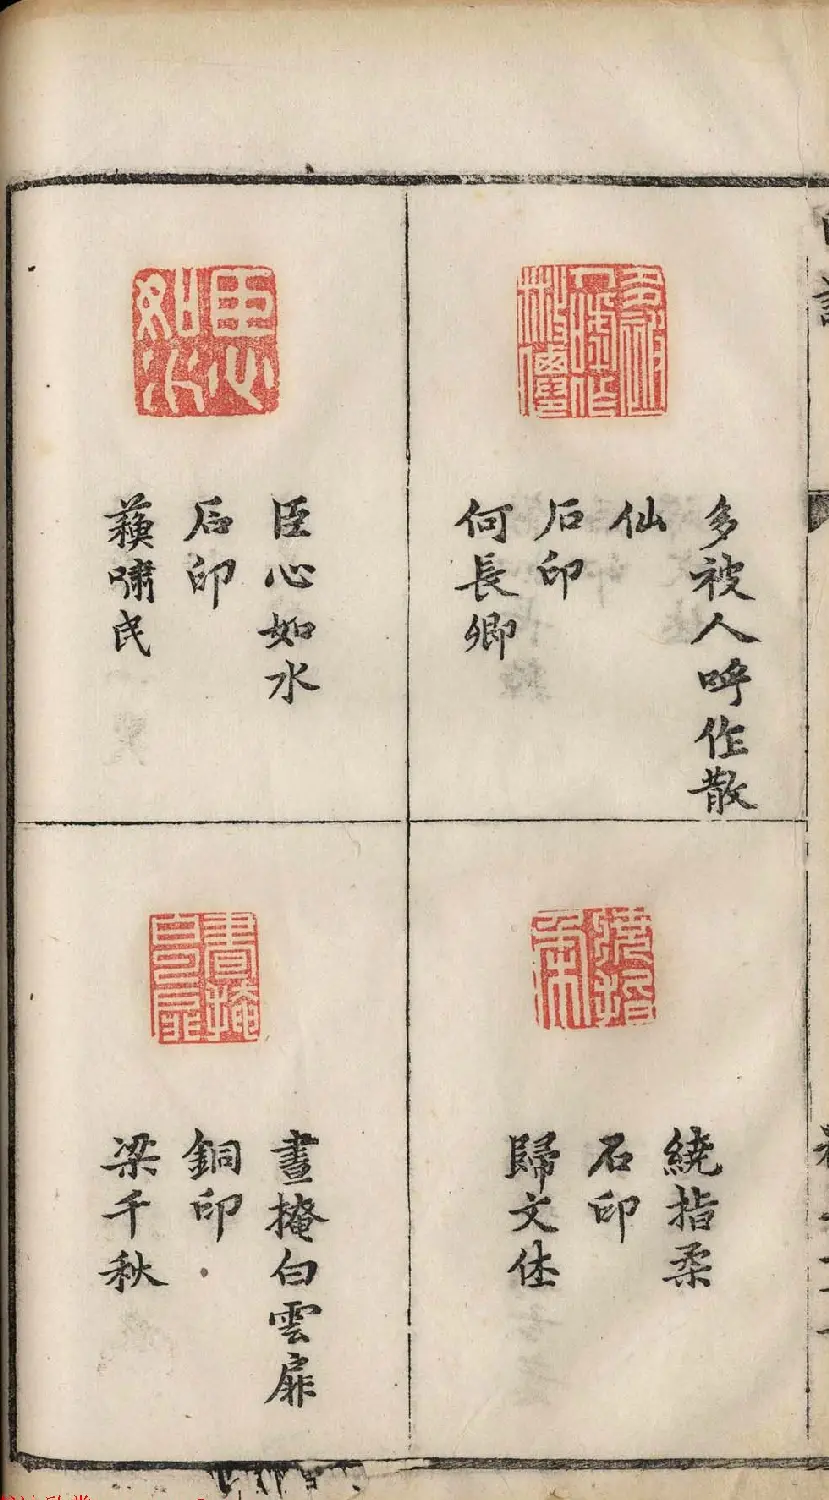 多被人呼作散
仙
石印
何長卿
繞指柔
石印
歸文休
臣心如水
石印
蘓嘯民
晝掩白雲扉
銅印
梁千秋